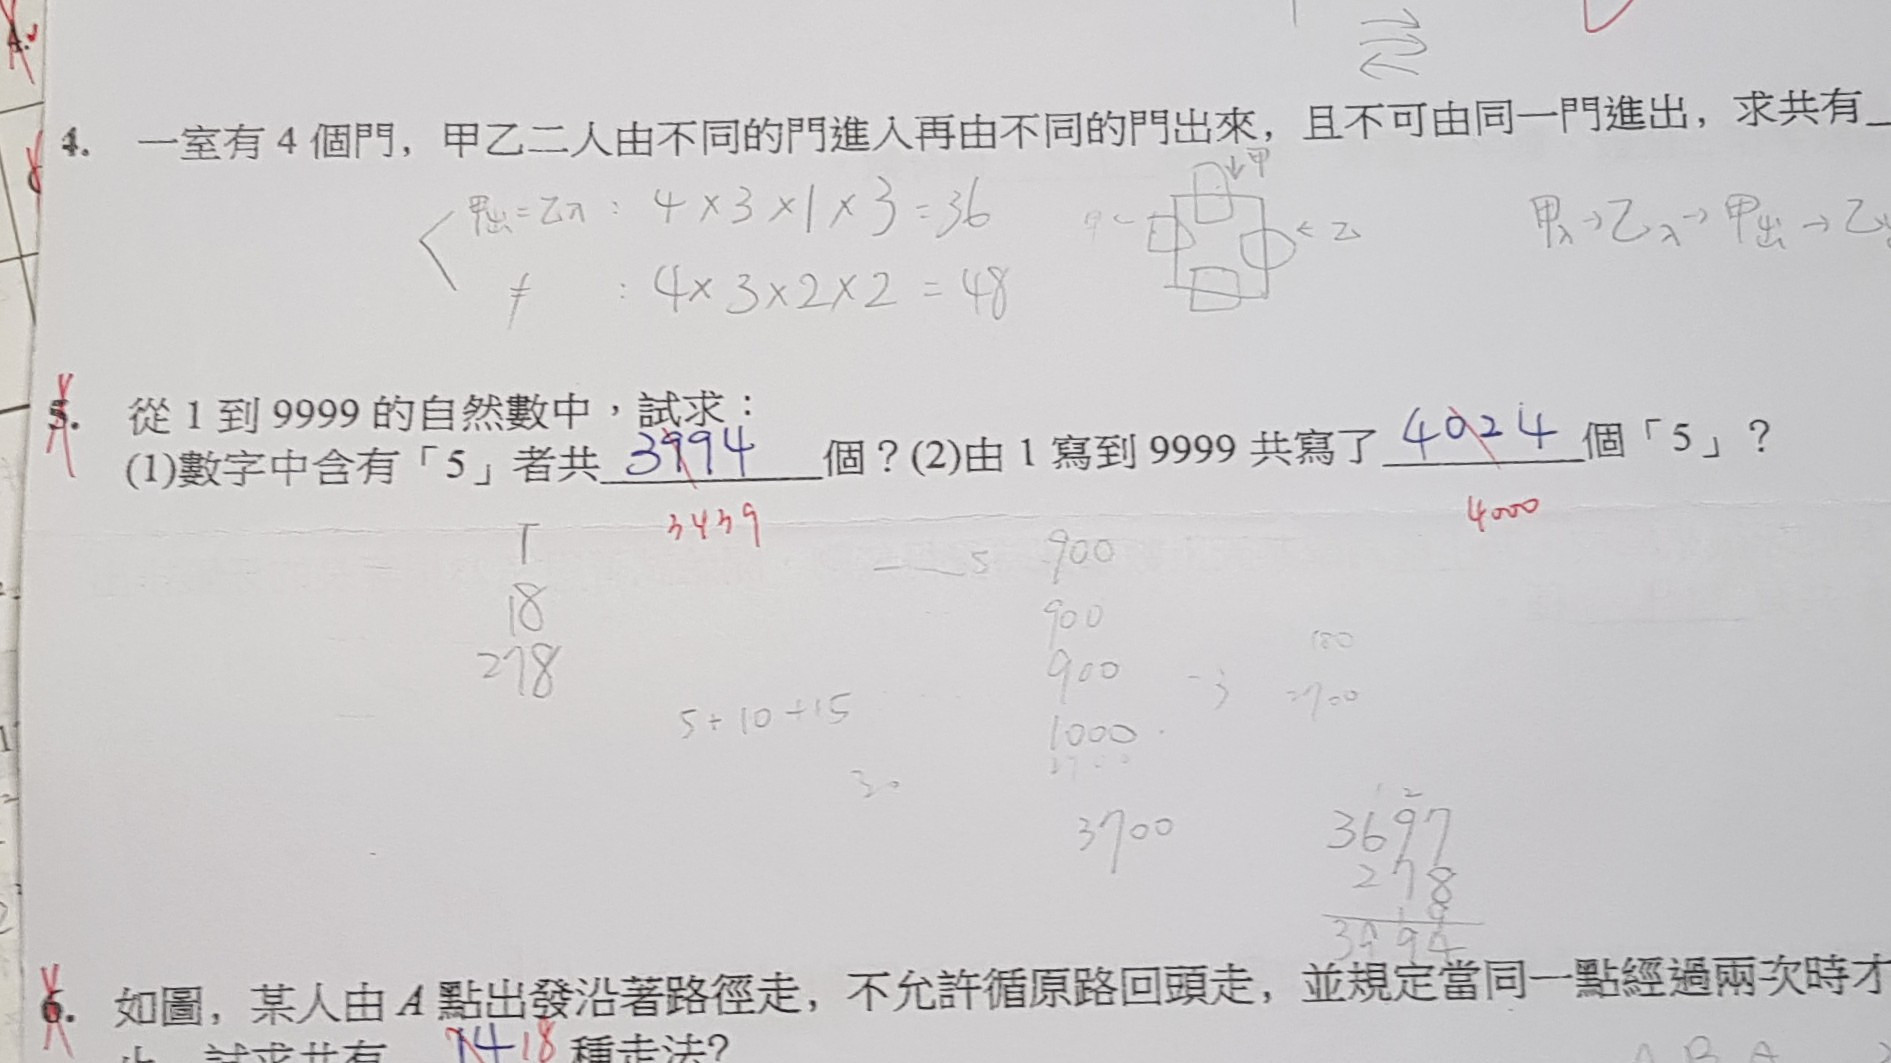 4. 一室有 4 個門，甲乙二人由不同的門進入再由不同的門出來，且不可由同一門進出，求共有
甲出=乙入 : 4×3×1×3=36
↓甲
←乙
甲入→乙入→甲出→乙
≠ : 4×3×2×2=48
5. 從 1 到 9999 的自然數中，試求：
(1)數字中含有「5」者共 3994 個？(2)由 1 寫到 9999 共寫了 4024 個「5」？
3439
4000
1
18
278
5
900
900
900
1000
-3
180
2700
5+10+15
30
3700
3697
278
3994
6. 如圖，某人由 A 點出發沿著路徑走，不允許循原路回頭走，並規定當同一點經過兩次時才
止，試求共有 18 種走法?
A B A